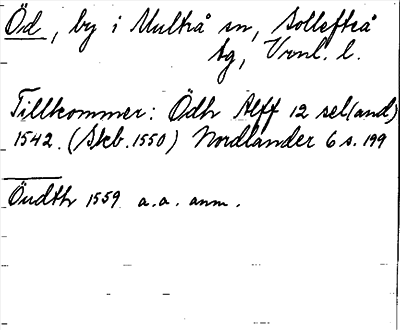 Öd, by i Multrå sn, Sollefteå
tg, Vrnl. l.
Tillkommer: Ödh Alff 12 sel(and)
1542. (Skb. 1550) Nordlander 6 s. 199
Öndth 1559 a.a. anm.